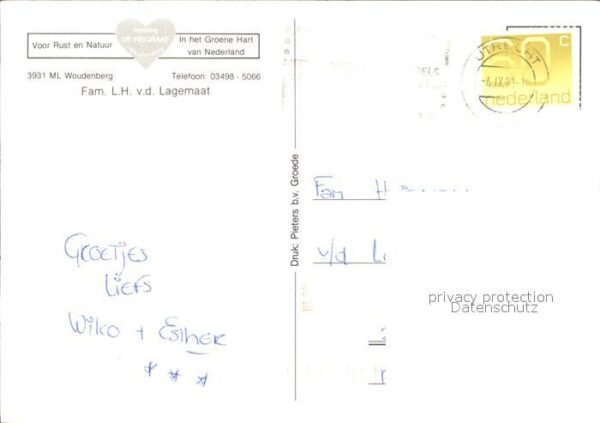 Voor Rust en Natuur
In het Groene Hart
van Nederland
3931 ML Woudenberg
Telefoon: 03498 - 5066
Fam. L.H. v.d. Lagemaat
Druk: Pieters b.v. Groede
UTRECHT
60 c
nederland
Groetjes
Liefs
Wilco + Esther
Fam H
v/d L
privacy protection
Datenschutz